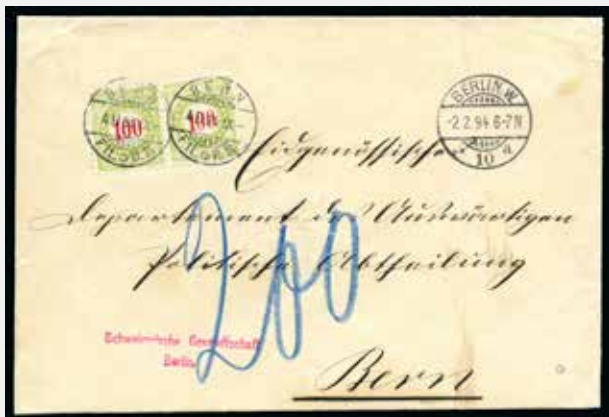 BERN
100 100
FIL. BRF.
BERLIN W.
-2.2.94 6-7N
10 a
Eidgenössische
Departement des Auswärtigen
Politische Abtheilung
200
Schweizerische Gesandtschaft
Berlin.
Bern